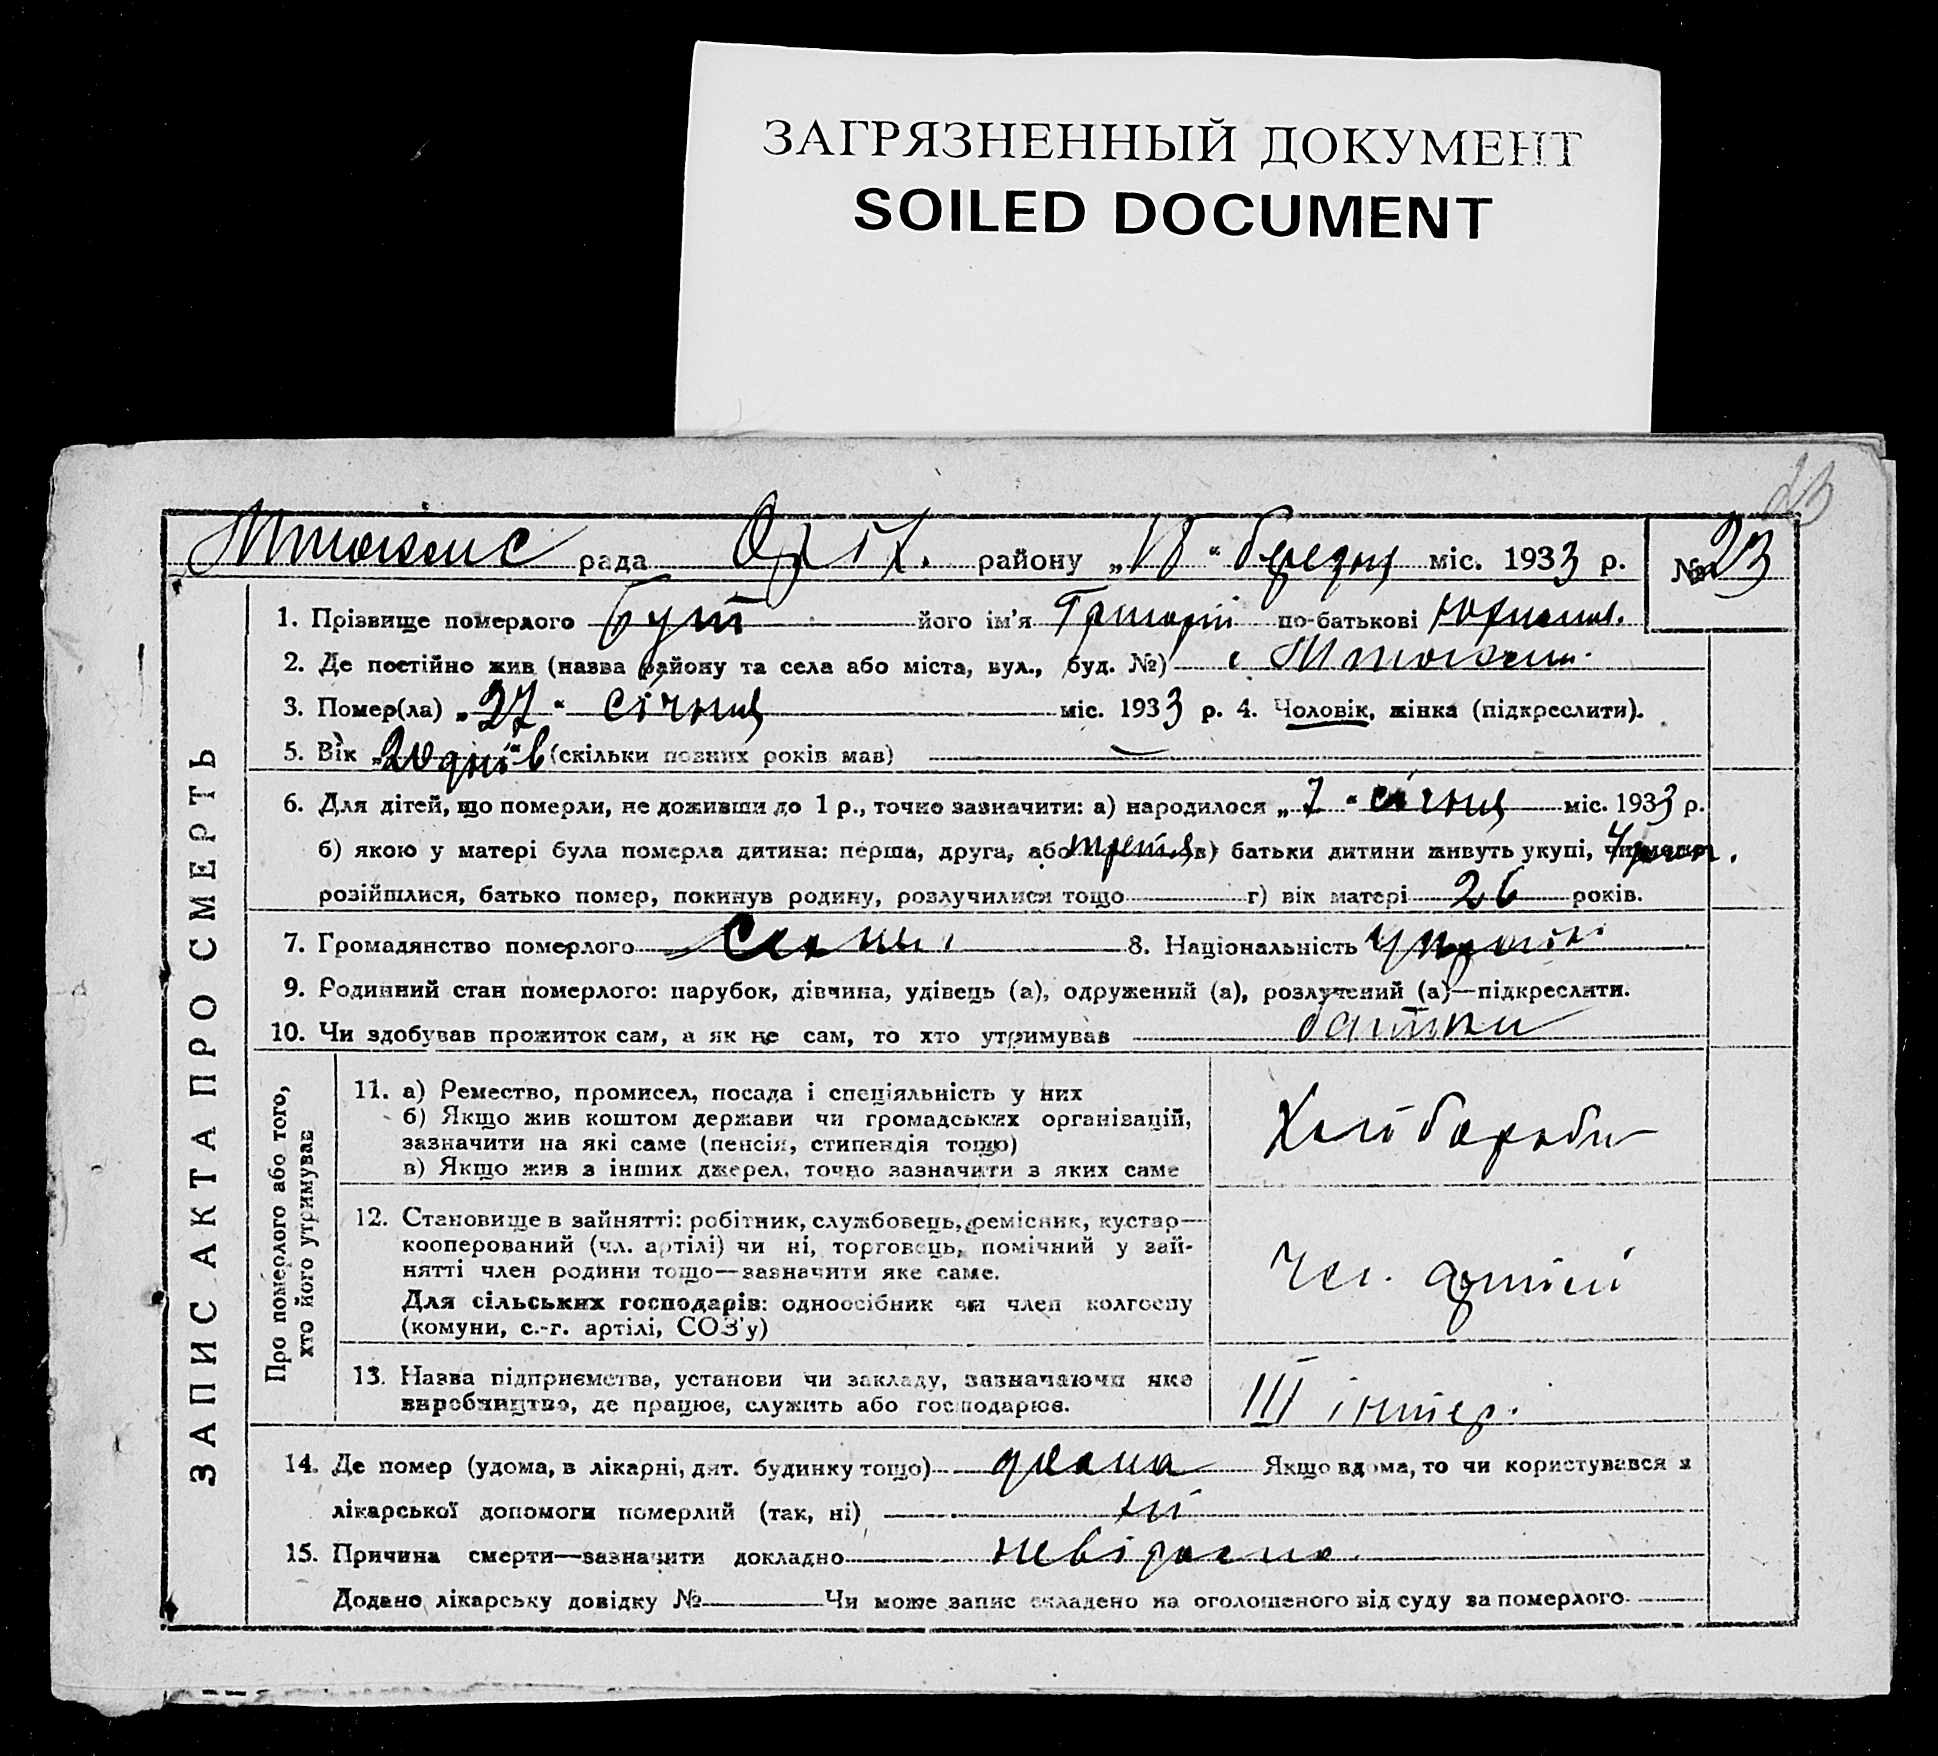 ЗАГРЯЗНЕННЫЙ ДОКУМЕНТ
SOILED DOCUMENT
23
рада район у „18“ березня міс. 1933 р. № 23
ЗАПИС АКТА ПРО СМЕРТЬ
1. Прізвище померлого Бут його ім'я Григорій по-батькові
2. Де постійно жив (назва району та села або міста, вул., буд. №) с
3. Помер(ла) „27“ січня міс. 1933 р. 4. Чоловік, жінка (підкреслити).
5. Вік „20 днів“ (скільки повних років мав) —
6. Для дітей, що померли, не доживши до 1 р., точно зазначити: а) народилося „7“ січня міс. 1933 р.
б) якою у матері була померла дитина: перша, друга, або третя в) батьки дитини живуть укупі, чи
розійшлися, батько помер, покинув родину, розлучилися тощо г) вік матері 26 років.
7. Громадянство померлого 8. Національність
9. Родинний стан померлого: парубок, дівчина, удівець (а), одружений (а), розлучений (а)—підкреслити.
10. Чи здобував прожиток сам, а як не сам, то хто утримував батьки
Про померлого або того,
хто його утримував
11. а) Ремество, промисел, посада і спеціяльність у них
б) Якщо жив коштом держави чи громадських організацій,
зазначити на які саме (пенсія, стипендія тощо)
в) Якщо жив з інших джерел, точно зазначити з яких саме
Хлібороби
12. Становище в зайнятті: робітник, службовець, ремісник, кустар—
кооперований (чл. артілі) чи ні, торговець, помічний у зай-
нятті член родини тощо—зазначити яке саме.
Для сільських господарів: одноосібник чи член колгоспу
(комуни, с.-г. артілі, СОЗ'у)
Чл. артілі
13. Назва підприємства, установи чи закладу, зазначаючи яке
виробництво, де працює, служить або господарює.
III інтер.
14. Де помер (удома, в лікарні, дит. будинку тощо) дома Якщо вдома, то чи користувався з
лікарської допомоги померлий (так, ні) ні
15. Причина смерти—зазначити докладно невідомо
Додано лікарську довідку № Чи може запис складено на оголошеного від суду за померлого.